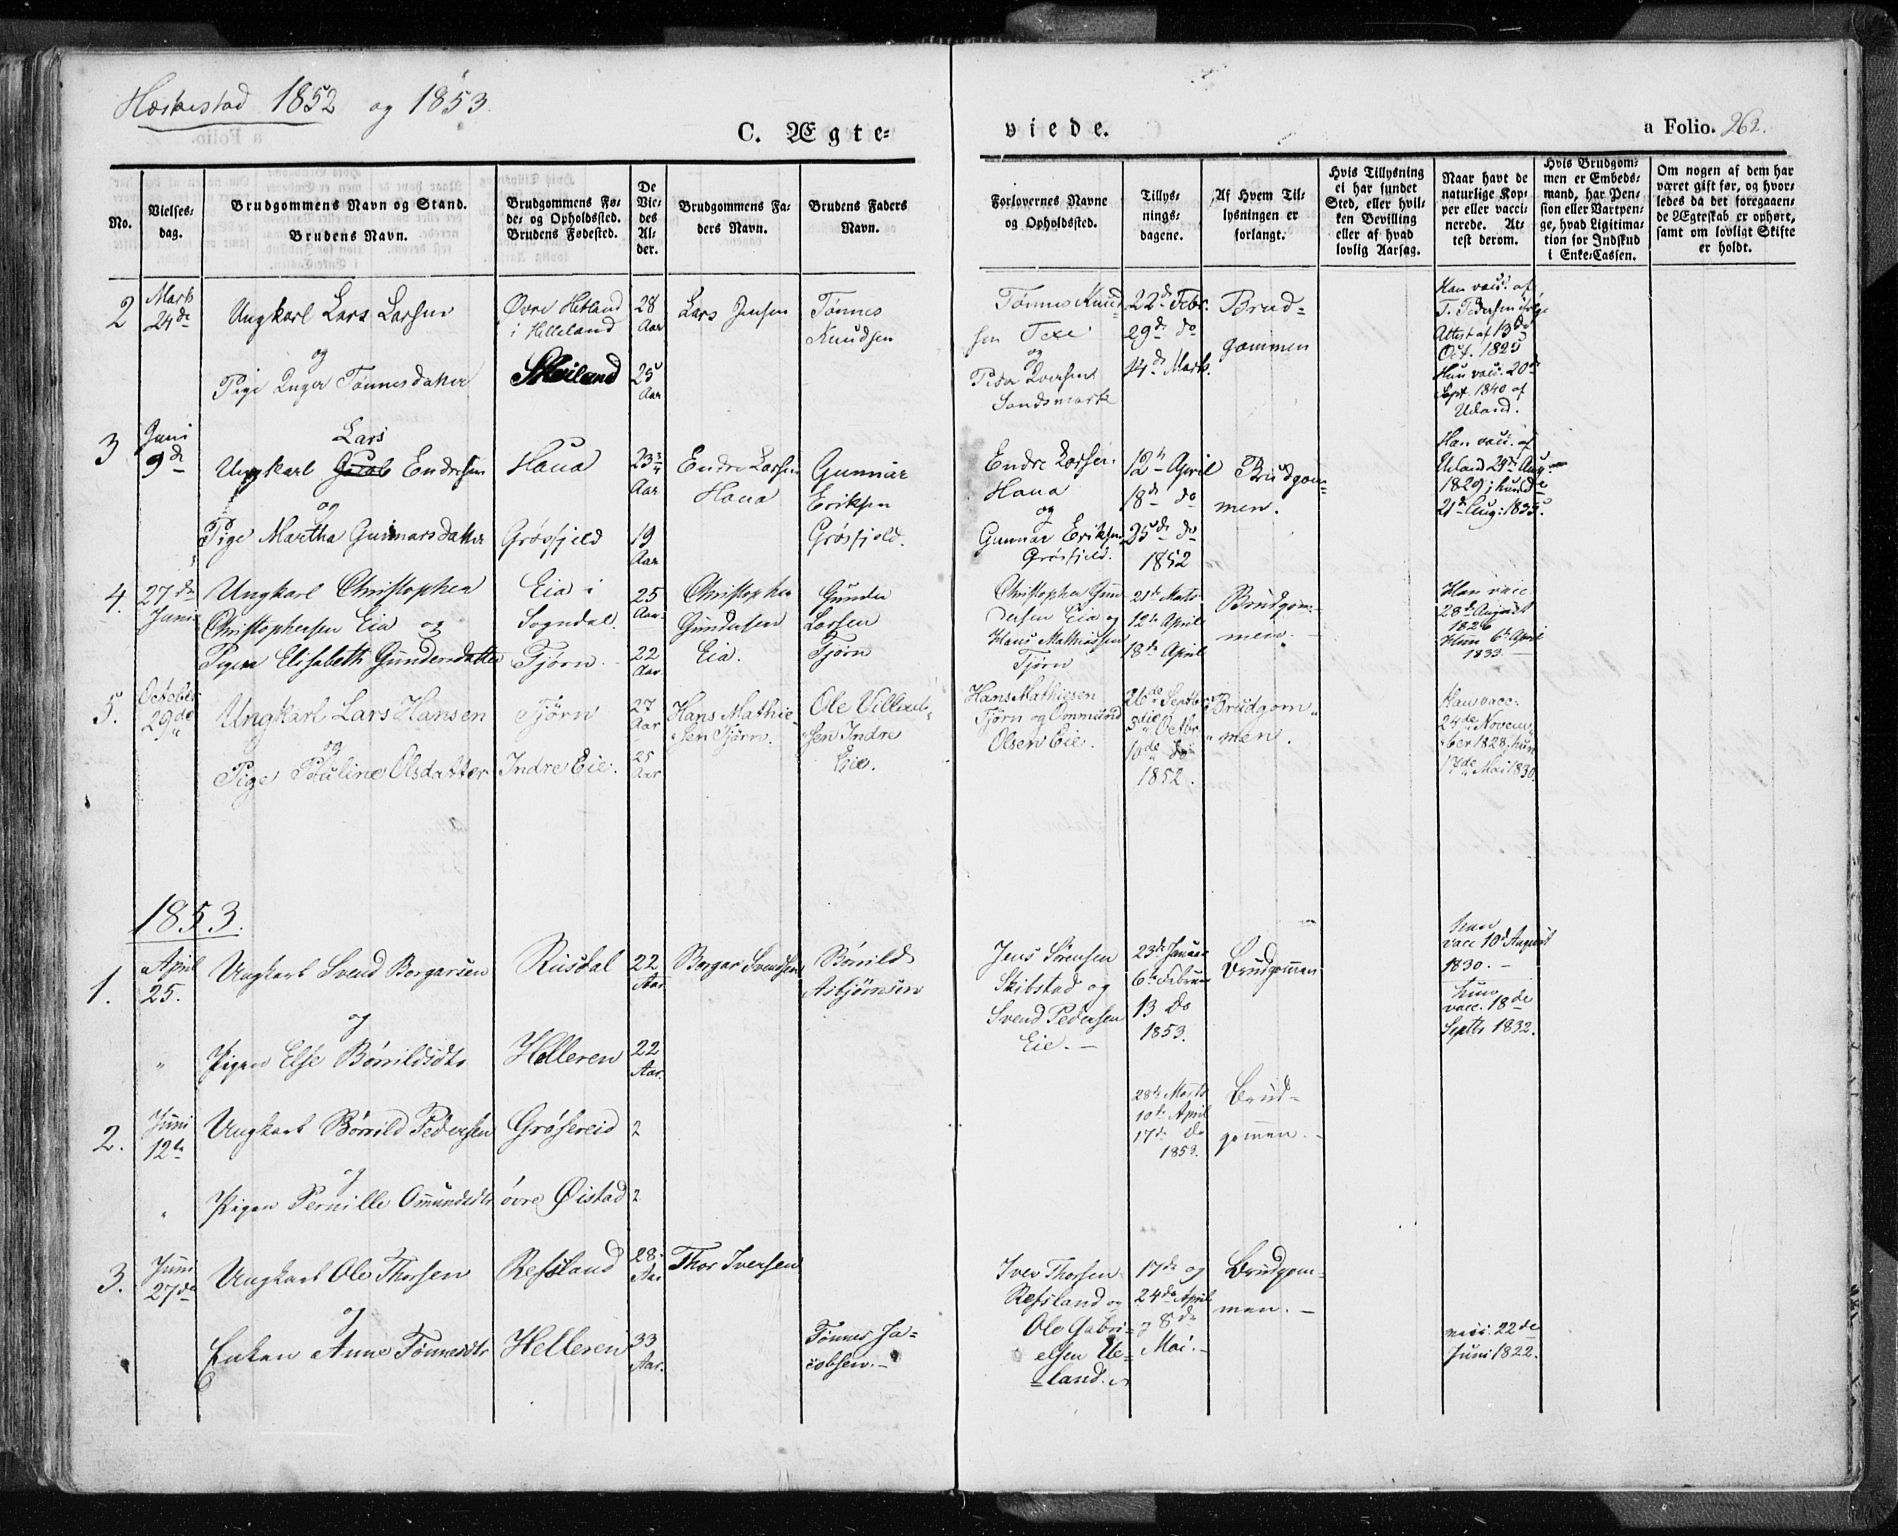 Heskestad 1852 og 1853.
C. Ægte-
viede.
a Folio. 262.
No.
Vielses-
dag.
Brudgommens Navn og Stand.
Brudens Navn.
Brudgommens Fø-
de- og Opholdssted.
Brudens Fødested.
De
Vie-
des
Al-
der.
Brudgommens Fa-
ders Navn.
Brudens Faders
Navn.
Forlovernes Navne
og Opholdssted.
Tillys-
nings-
dagene.
Af Hvem Til-
lysningen er
forlangt.
Hvis Tillysning
ei har fundet
Sted, eller hvil-
ken Bevilling
eller af hvad
lovlig Aarsag.
Naar havt de
naturlige Kop-
per eller vacci-
nerede. At-
test derom.
Hvis Brudgom-
men er Embeds-
mand, har Pen-
sion eller Vartpen-
ge, hvad Legitima-
tion for Indskud
i Enke-Cassen.
Om nogen af dem har
været gift før, og hvor-
ledes da det foregaaen-
de Ægteskab er ophørt,
samt om lovligt Skifte
er holdt.
2
Marts
24de
Ungkarl Lars Larsen
og
Pige Inger Tønnesdatter
Øvre Hetland
i Helleland
Skeiland
28
Aar
25
Aar
Lars Jensen
Tønnes
Knudsen
Tønnes Knud-
sen
og
Peder Iversen
Sandsmark
22de Febr.
29de do
14de Marts.
Brud-
gommen
Han vacc. af
T. Pedersen
Attest af 13de
Oct. 1825
Hun vacc. 20de
Sept. 1840 af
Ueland.
3
Juni
9de
Lars
Ungkarl Jacob Endresen
og
Pige Martha Gunnarsdatter
Haua
Grøsfjeld
23 3/4
Aar
19
Aar
Endre Larsen
Haua
Gunnar
Eriksen
Grøsfjeld.
Endre Larsen
Haua
og
Gunnar Eriksen
Grøsfjeld.
12te April
18de do
25de do
1852
Brudgom-
men.
Han vacc. af
Ueland 24de Aug
1829; hun de
21de Aug: 1835.
4.
27de
Juni
Ungkarl Christopher
Christophersen Eia og
Pigen Elisabeth Gundersdatter
Eia i
Sogndal.
Tjørn.
25
Aar.
22
Aar
Christopher
Gundersen
Eia.
Gunder
Larsen
Tjørn
Christopher Gun-
dersen Eia og
Hans Mathiassen
Tjørn
21de Marts
12te April
18de April
Brudgom-
men.
Han vacc
28de August
1826
Hun 6te April
1833.
5.
October
29de
Ungkarl Lars Hansen
og
Pige Pouline Olsdatter
Tjørn
Indre Eie.
27
Aar
25
Aar
Hans Mathie-
sen Tjørn.
Ole Villad-
sen Indre
Eie.
Hans Mathiesen
Tjørn og Ommund
Olsen Eie.
26de Septbr
3die Octbr
10de do
1852.
Brudgom
men.
Han vacc.
24de Novem-
ber 1828, hun
17de Mai 1830.
1853.
1.
April
25.
Ungkarl Svend Borgarsen
og
Pigen Else Børrildsdtr
Rusdal
Helleren
22
Aar
22
Aar.
Borgar Svendsen
Børrild
Asbjørnsen
Jens Sørensen
Skibstad og
Svend Pedersen
Eie.
23de Januar
6te Februar
13 Do
1853.
Brudgommen
han
vacc 10de August
1830.
hun
vacc. 18de
Septb 1832.
2.
Juni
12te
Ungkarl Børrild Pedersen
og
Pigen Pernille Omundsdtr
Grøsereid
øvre Øistad
2
2
28de Marts
10de April
17de Do
1853.
Brud-
gommen.
3.
Juni
27de
Ungkarl Ole Thorsen
og
Enken Anne Tønnesdtr
Refsland
Helleren
28
Aar
33
Aar.
Thor Iversen
Tønnes Ja-
cobsen.
Iver Thorsen
Refsland og
Ole Gabri-
elsen Ue-
land.
17de og
24de April
og 8de
Mai.
Brudgom-
men.
vacc. 22de
Juni 1822.